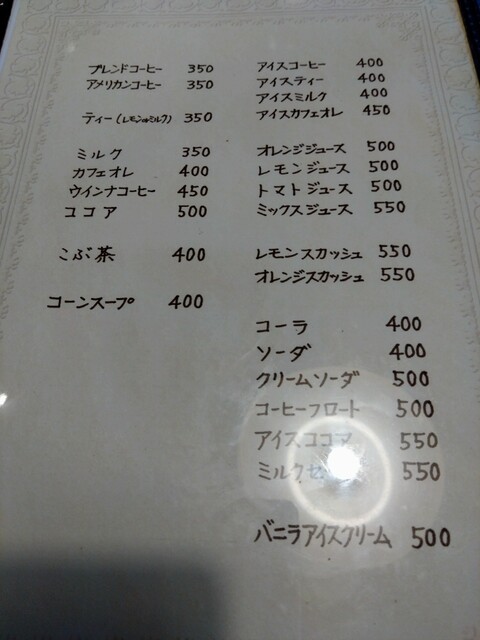 ブレンドコーヒー 350
アメリカンコーヒー 350
ティー(レモンorミルク) 350
ミルク 350
カフェオレ 400
ウインナコーヒー 450
ココア 500
こぶ茶 400
コーンスープ 400
アイスコーヒー 400
アイスティー 400
アイスミルク 400
アイスカフェオレ 450
オレンジジュース 500
レモンジュース 500
トマトジュース 500
ミックスジュース 550
レモンスカッシュ 550
オレンジスカッシュ 550
コーラ 400
ソーダ 400
クリームソーダ 500
コーヒーフロート 500
アイスココア 550
550
バニラアイスクリーム 500